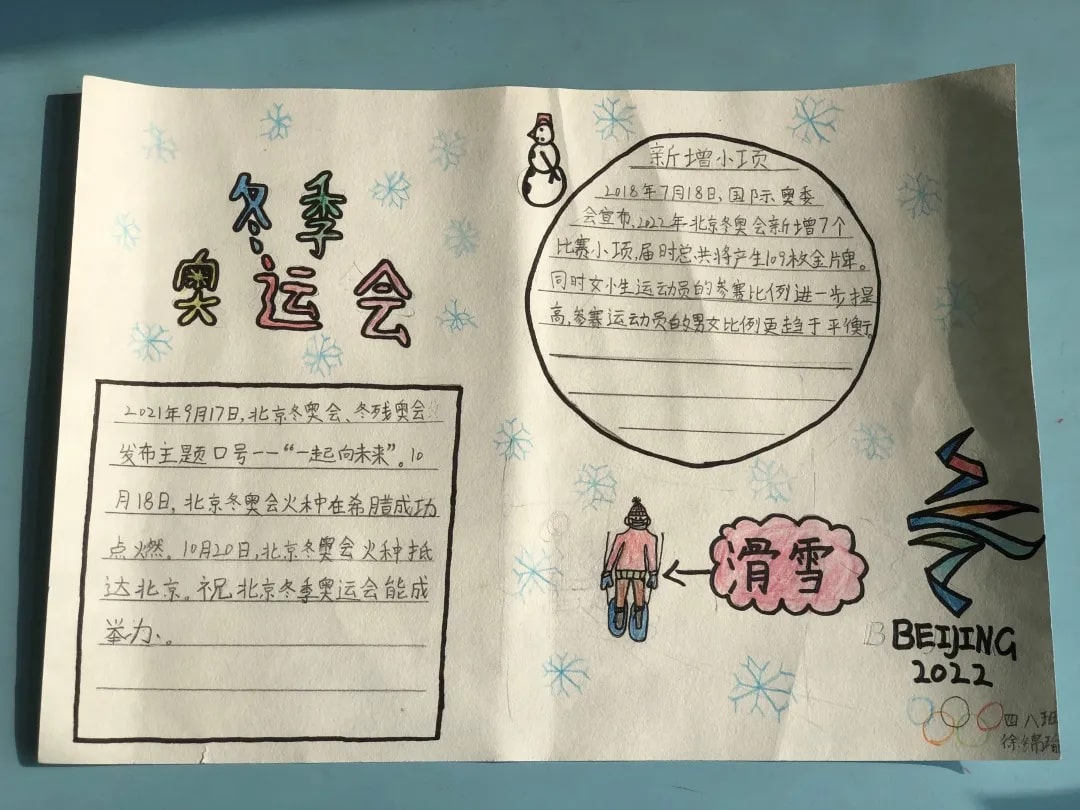 冬季
奥运会
2021年9月17日,北京冬奥会、冬残奥会
发布主题口号——“一起向未来”。10
月18日,北京冬奥会火种在希腊成功
点燃。10月20日,北京冬奥会火种抵
达北京。祝北京冬季奥运会能成
举办。
新增小项
2018年7月18日,国际奥委
会宣布,2022年北京冬奥会新增7个
比赛小项,届时总共将产生109枚金牌。
同时女小生运动员的参赛比例进一步提
高,参赛运动员的男女比例更趋于平衡。
滑雪
BEIJING
2022
四八班
徐